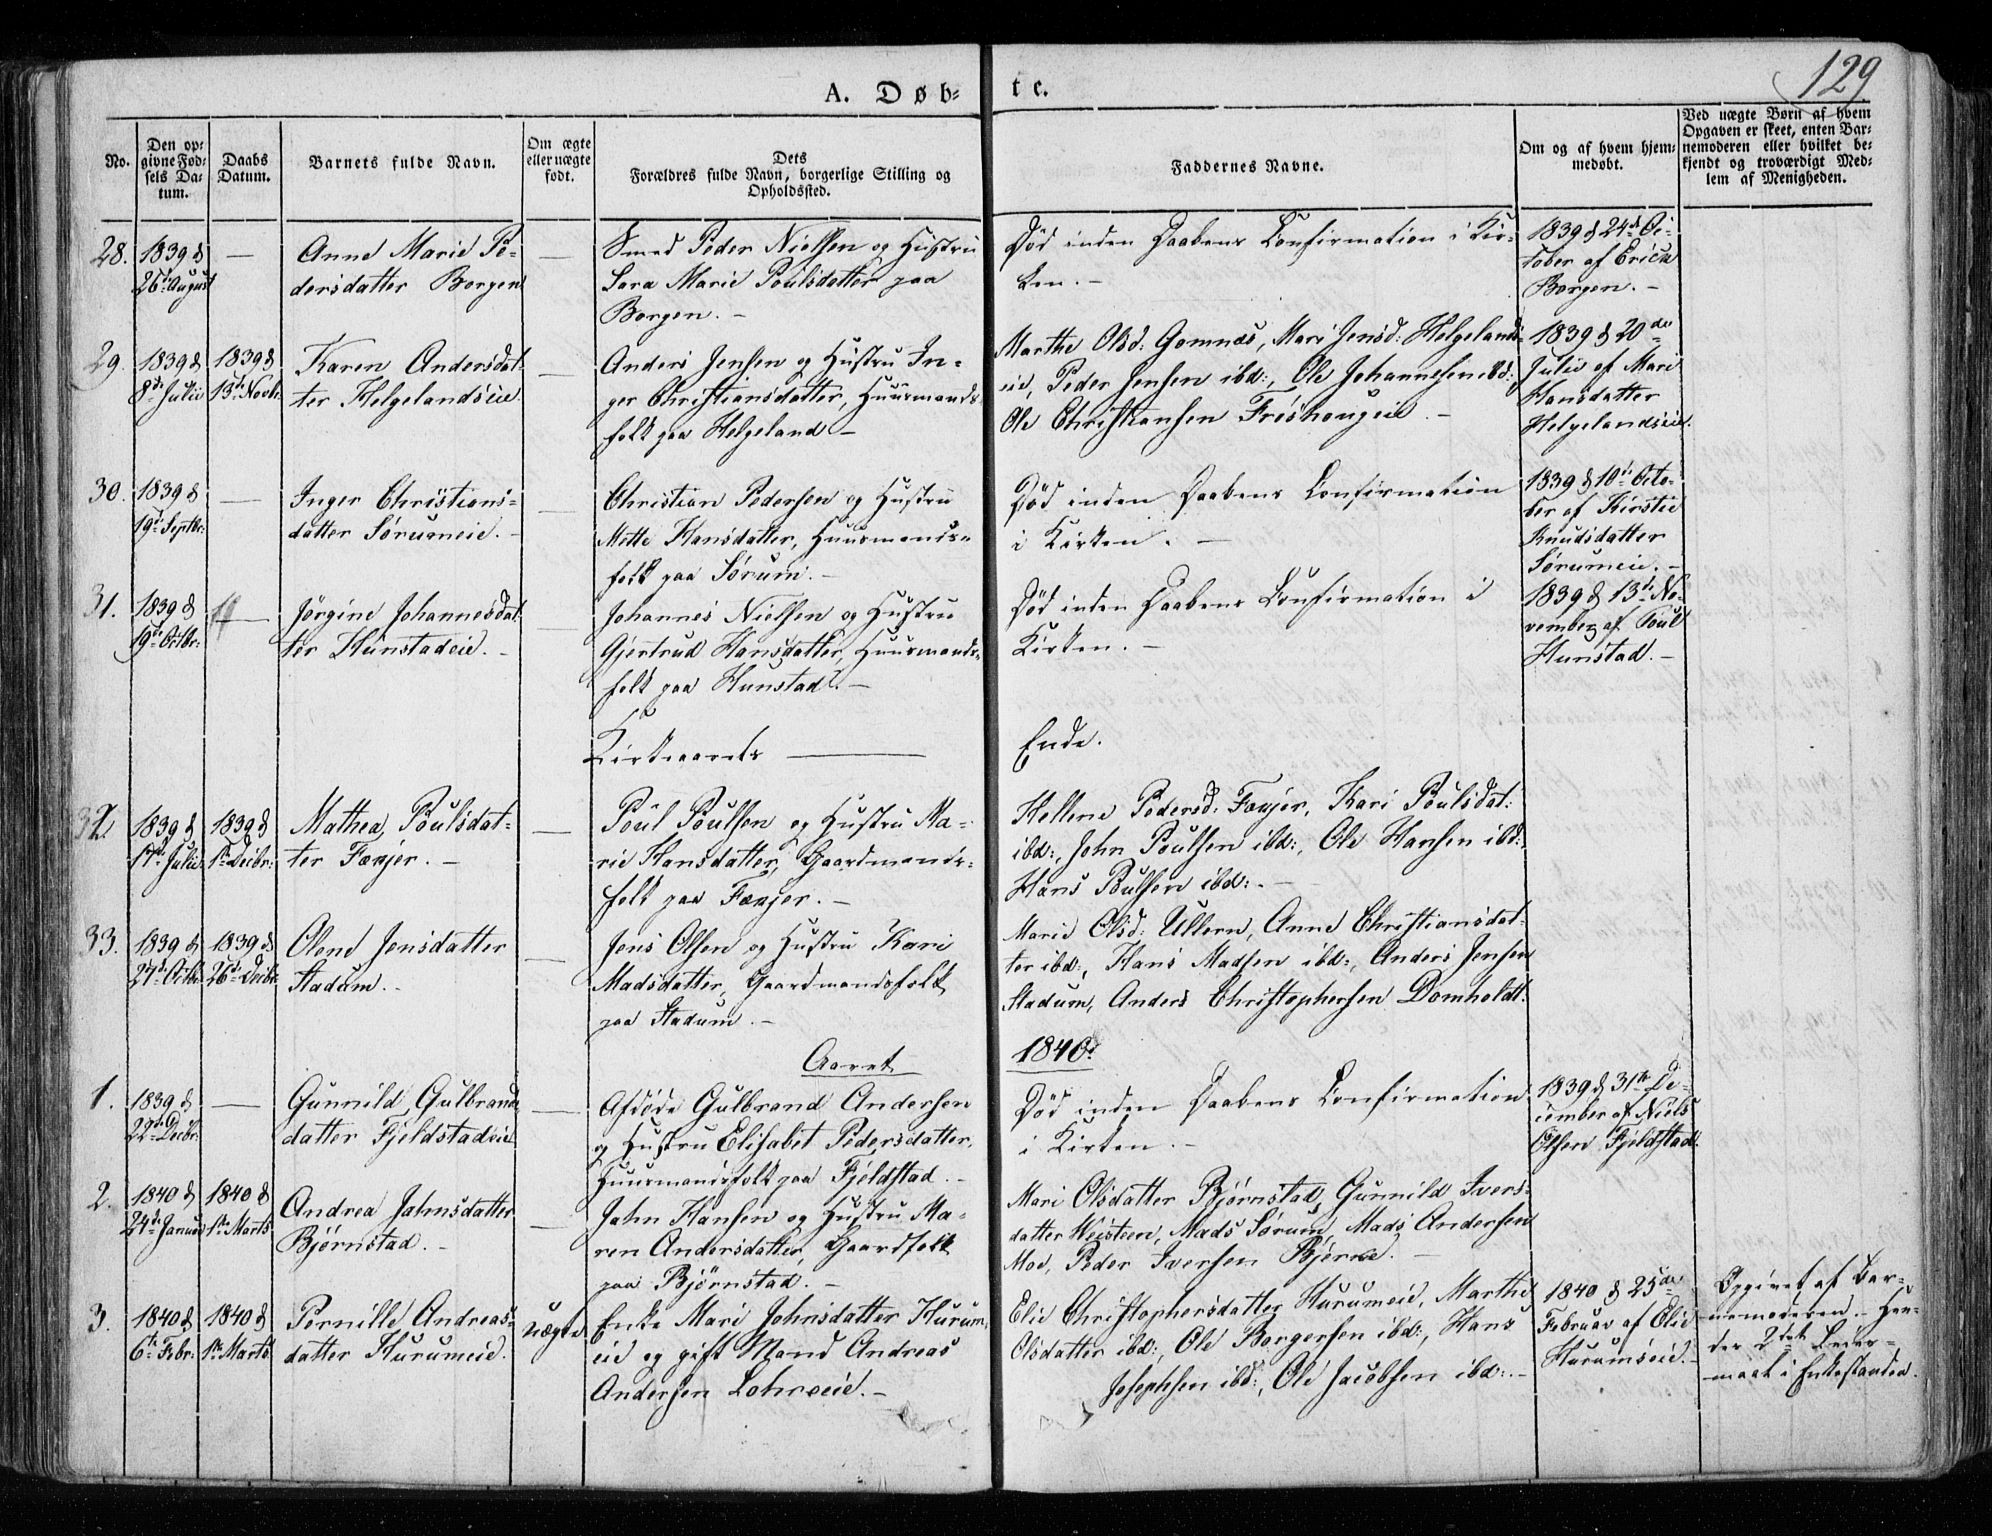 129
A. Døb-
te.
No.
Den op-
givne Fød-
sels Da-
tum.
Daabs
Datum.
Barnets fulde Navn.
Om ægte
eller uægte
født.
Dets
Forældres fulde Navn, borgerlige Stilling og
Opholdssted.
Faddernes Navne.
Om og af hvem hjem-
medøbt.
Ved uægte Børn af hvem
Opgaven er skeet, enten Bar-
nemoderen eller hvilket be-
kjendt og troværdigt Med-
lem af Menigheden.
28.
1839 d
25de August
—
Anne Marie Pe-
dersdatter Borgen
—
Smed Peder Nielsen og Hustru
Sara Marie Poulsdatter paa
Borgen. –
Død inden Daabens Confirmation i Kir-
ken. –
1839 d 24de Oc-
tober af Erick
Borgen. –
29.
1839 d
8de Julii
1839 d
13de Novb.
Karen Andersdat-
ter Helgelandseie
—
Anders Jensen og Hustru In-
ger Christiansdatter, Huusmands-
folk paa Helgeland –
Marthe Olsd: Gomnæs, Mari Jensd: Helgelands-
eie, Peder Jensen ibd:, Ole Johannesen ibd:
Ole Christiansen Frøshougeie. –
1839 d 20de
Julii af Mari
Hansdatter
Helgelandseie.
30.
1839 d
19de Septbr:
—
Inger Christians-
datter Sørumeie. –
—
Christian Pedersen og Hustru
Mette Hansdatter, Huusmands-
folk paa Sørum. –
Død inden Daabens Confirmation
i Kirken. –
1839 d 10de Octo-
ber af Kirstie
Knudsdatter
Sørumeie. –
31.
1839 d
19de Octbr:
—
Jørgine Johannesdat-
ter Hunstadeie. –
—
Johannes Nielsen og Hustru
Gjertrud Hansdatter, Huusmands-
folk paa Hunstad. –
Død inden Daabens Confirmation i
Kirken. –
1839 d 13de No-
vember af Poul
Hunstad. –
Kirkeaarets —
Ende.
32.
1839 d
17de Julii
1839 d
1ste Decbr:
Mathea Poulsdat-
ter Fægjer. –
—
Poul Poulsen og Hustru Ma-
rie Hansdatter, Gaardmands-
folk paa Fægjer. –
Hellene Pedersd: Fægjer, Kari Poulsdat:
ibd:, John Poulsen ibd:, Ole Hansen ibd:
Hans Poulsen ibd:. –
33.
1839 d
27de Octbr:
1839 d
26de Decbr.
Olene Jensdatter
Stadum. –
—
Jens Olsen og Hustru Kari
Madsdatter, Gaardmandsfolk
paa Stadum. –
Marie Olsd: Ullern, Anne Christiansdat-
ter ibd:, Hans Madsen ibd:, Anders Jensen
Stadum, Anders Christophersen Domholdt.
Aaret
1840.
1.
1839 d
22de Decbr.
—
Gunnild Gulbrands-
datter Fjeldstadeie
—
Afdøde Gulbrand Andersen
og Hustru Elisabet Pedersdatter,
Huusmandsfolk paa Fjeldstad. –
Død inden Daabens Confirmation
i Kirken. –
1839 d 31te De-
cember af Niels
Olsen Fjeldstad.
2.
1840 d
24de Januar
1840 d
1ste Marts
Andrea Jahnsdatter
Bjørnstad. –
—
Jahn Hansen og Hustru Ma-
ren Andersdatter, Gaardfolk
paa Bjørnstad. –
Mari Olsdatter Bjørnstad, Gunnild Ivers-
datter Weisteen, Mads Sørum, Mads Andersen
Moe, Peder Iversen Bjerke. –
3.
1840 d
6te Febr:
1840 d
1ste Marts
Pernille Andreas-
datter Hurumeie.
uægte
Enke Mari Johnsdatter Hurum-
eie og gift Mand Andreas
Andersen Lohreeie. –
Elie Christophersdatter Hurumeie, Marthe
Olsdatter ibd:, Ole Borgersen ibd:, Hans
Josephsen ibd:, Ole Jacobsen ibd:. –
1840 d 25de
Februar af Elie
Hurumseie. –
Opgivet af Bar-
nemoderen. – Hen-
des 2det Leier-
maal i Enkestanden.